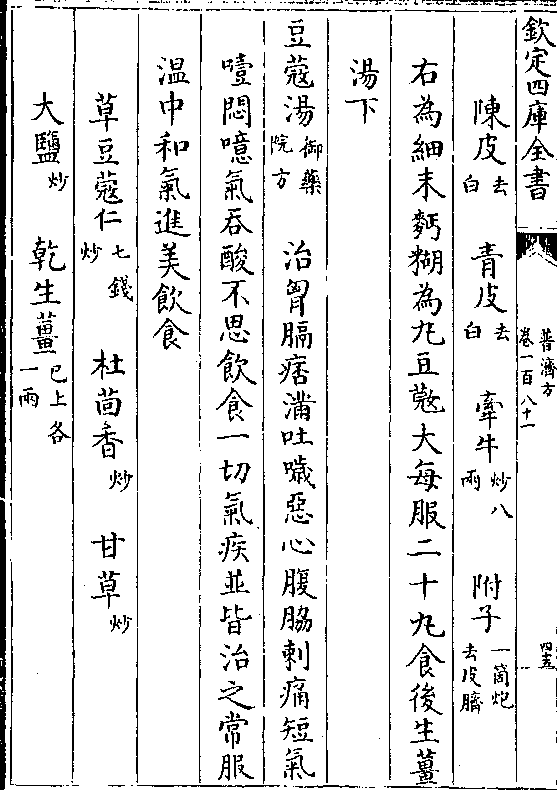 欽定四庫全書
普濟方
卷一百八十一
四五
陳皮去白 青皮去白 牽牛炒八兩 附子一箇炮去皮臍
右為細末麪糊為丸豆蔲大每服二十丸食後生薑
湯下
豆蔲湯御藥院方 治胷膈痞滿吐噦惡心腹脇刺痛短氣
噎悶噫氣吞酸不思飲食一切氣疾並皆治之常服
温中和氣進美飲食
草豆蔲仁七錢炒 杜茴香炒 甘草炒
大鹽炒 乾生薑已上各一兩